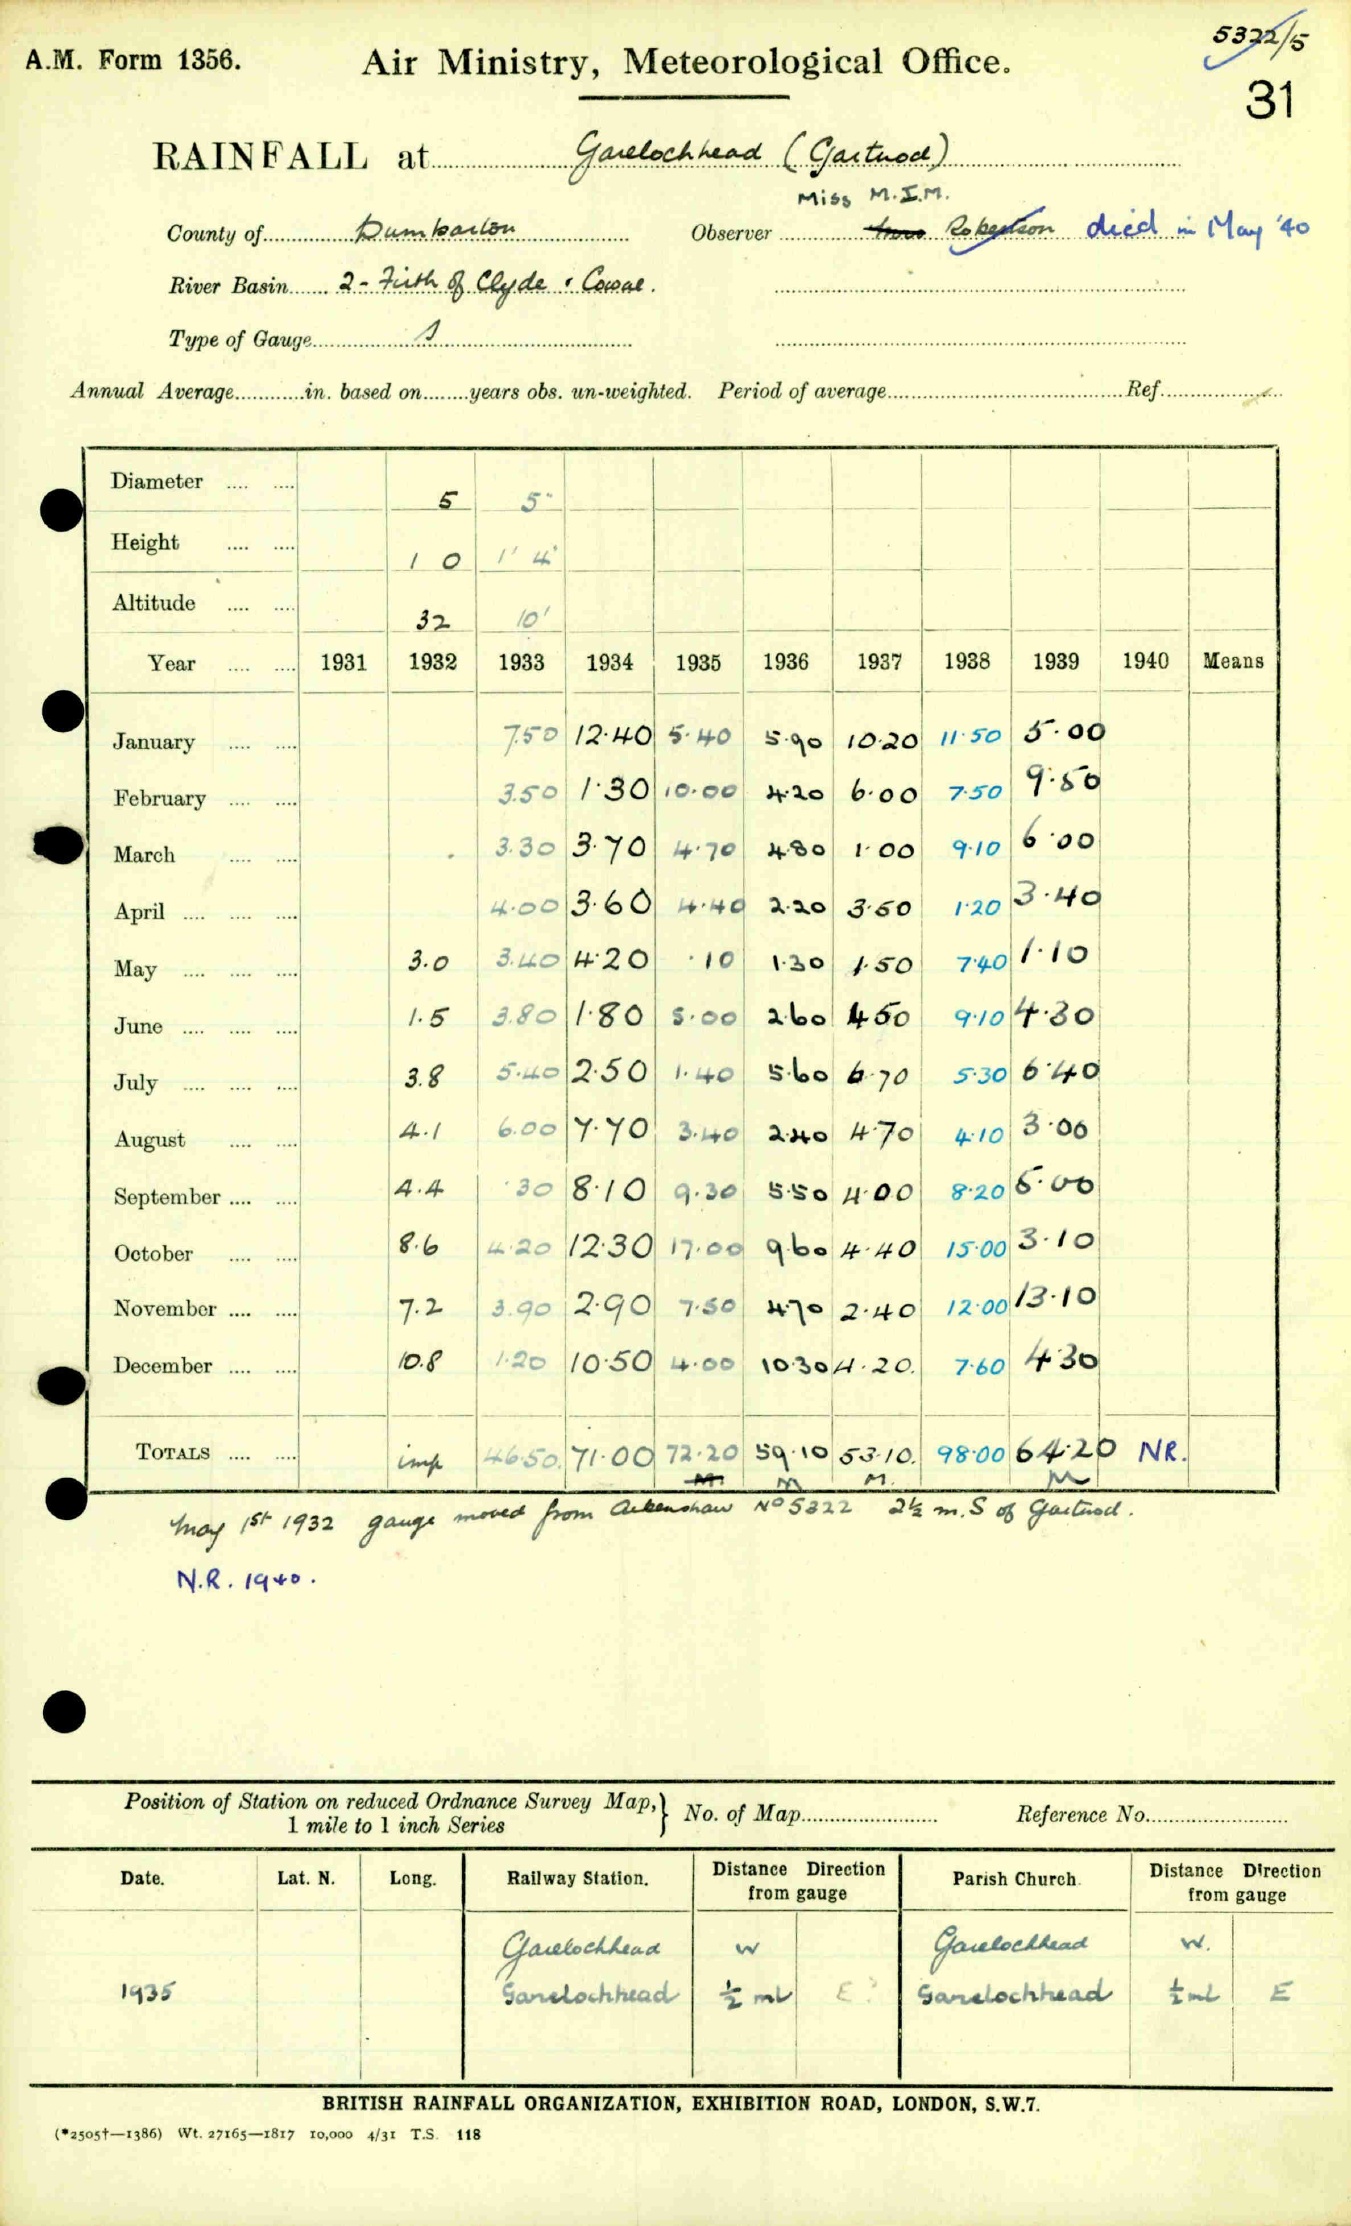 5322/5
A.M. Form 1356. Air Ministry, Meteorological Office.
31
RAINFALL at Garelochhead (Gartnod)
Miss M.I.M.
County of Dumbarton Observer Robertson died in May '40
River Basin 2 - Firth of Clyde & Cowal.
Type of Gauge S
Annual Average in. based on years obs. un-weighted. Period of average Ref.
Diameter 5 5"
Height 1 0 1' 4"
Altitude 32 10'
Year 1931 1932 1933 1934 1935 1936 1937 1938 1939 1940 Means
January 7.50 12.40 5.40 5.90 10.20 11.50 5.00
February 3.50 1.30 10.00 4.20 6.00 7.50 9.50
March 3.30 3.70 4.70 4.80 1.00 9.10 6.00
April 4.00 3.60 4.40 2.20 3.50 1.20 3.40
May 3.0 3.40 4.20 .10 1.30 1.50 7.40 1.10
June 1.5 3.80 1.80 5.00 2.60 4.50 9.10 4.30
July 3.8 5.40 2.50 1.40 5.60 6.70 5.30 6.40
August 4.1 6.00 7.70 3.40 2.40 4.70 4.10 3.00
September 4.4 .30 8.10 9.30 5.50 4.00 8.20 5.00
October 8.6 4.20 12.30 17.00 9.60 4.40 15.00 3.10
November 7.2 3.90 2.90 7.50 4.70 2.40 12.00 13.10
December 10.8 1.20 10.50 4.00 10.30 4.20. 7.60 4.30
TOTALS imp 46.50. 71.00 72.20 59.10 53.10. 98.00 64.20 NR.
M M M. M
May 1st 1932 gauge moved from Ardenshaw No 5322 2½ m. S of Gartnod.
N.R. 1940.
Position of Station on reduced Ordnance Survey Map, } No. of Map Reference No.
1 mile to 1 inch Series
Date. Lat. N. Long. Railway Station. Distance Direction from gauge Parish Church. Distance Direction from gauge
Garelochhead W Garelochhead W.
1935 Garelochhead ½ ml E? Garelochhead ½ ml E
BRITISH RAINFALL ORGANIZATION, EXHIBITION ROAD, LONDON, S.W.7.
(*2505†—1386) Wt. 27165—1817 10,000 4/31 T.S. 118